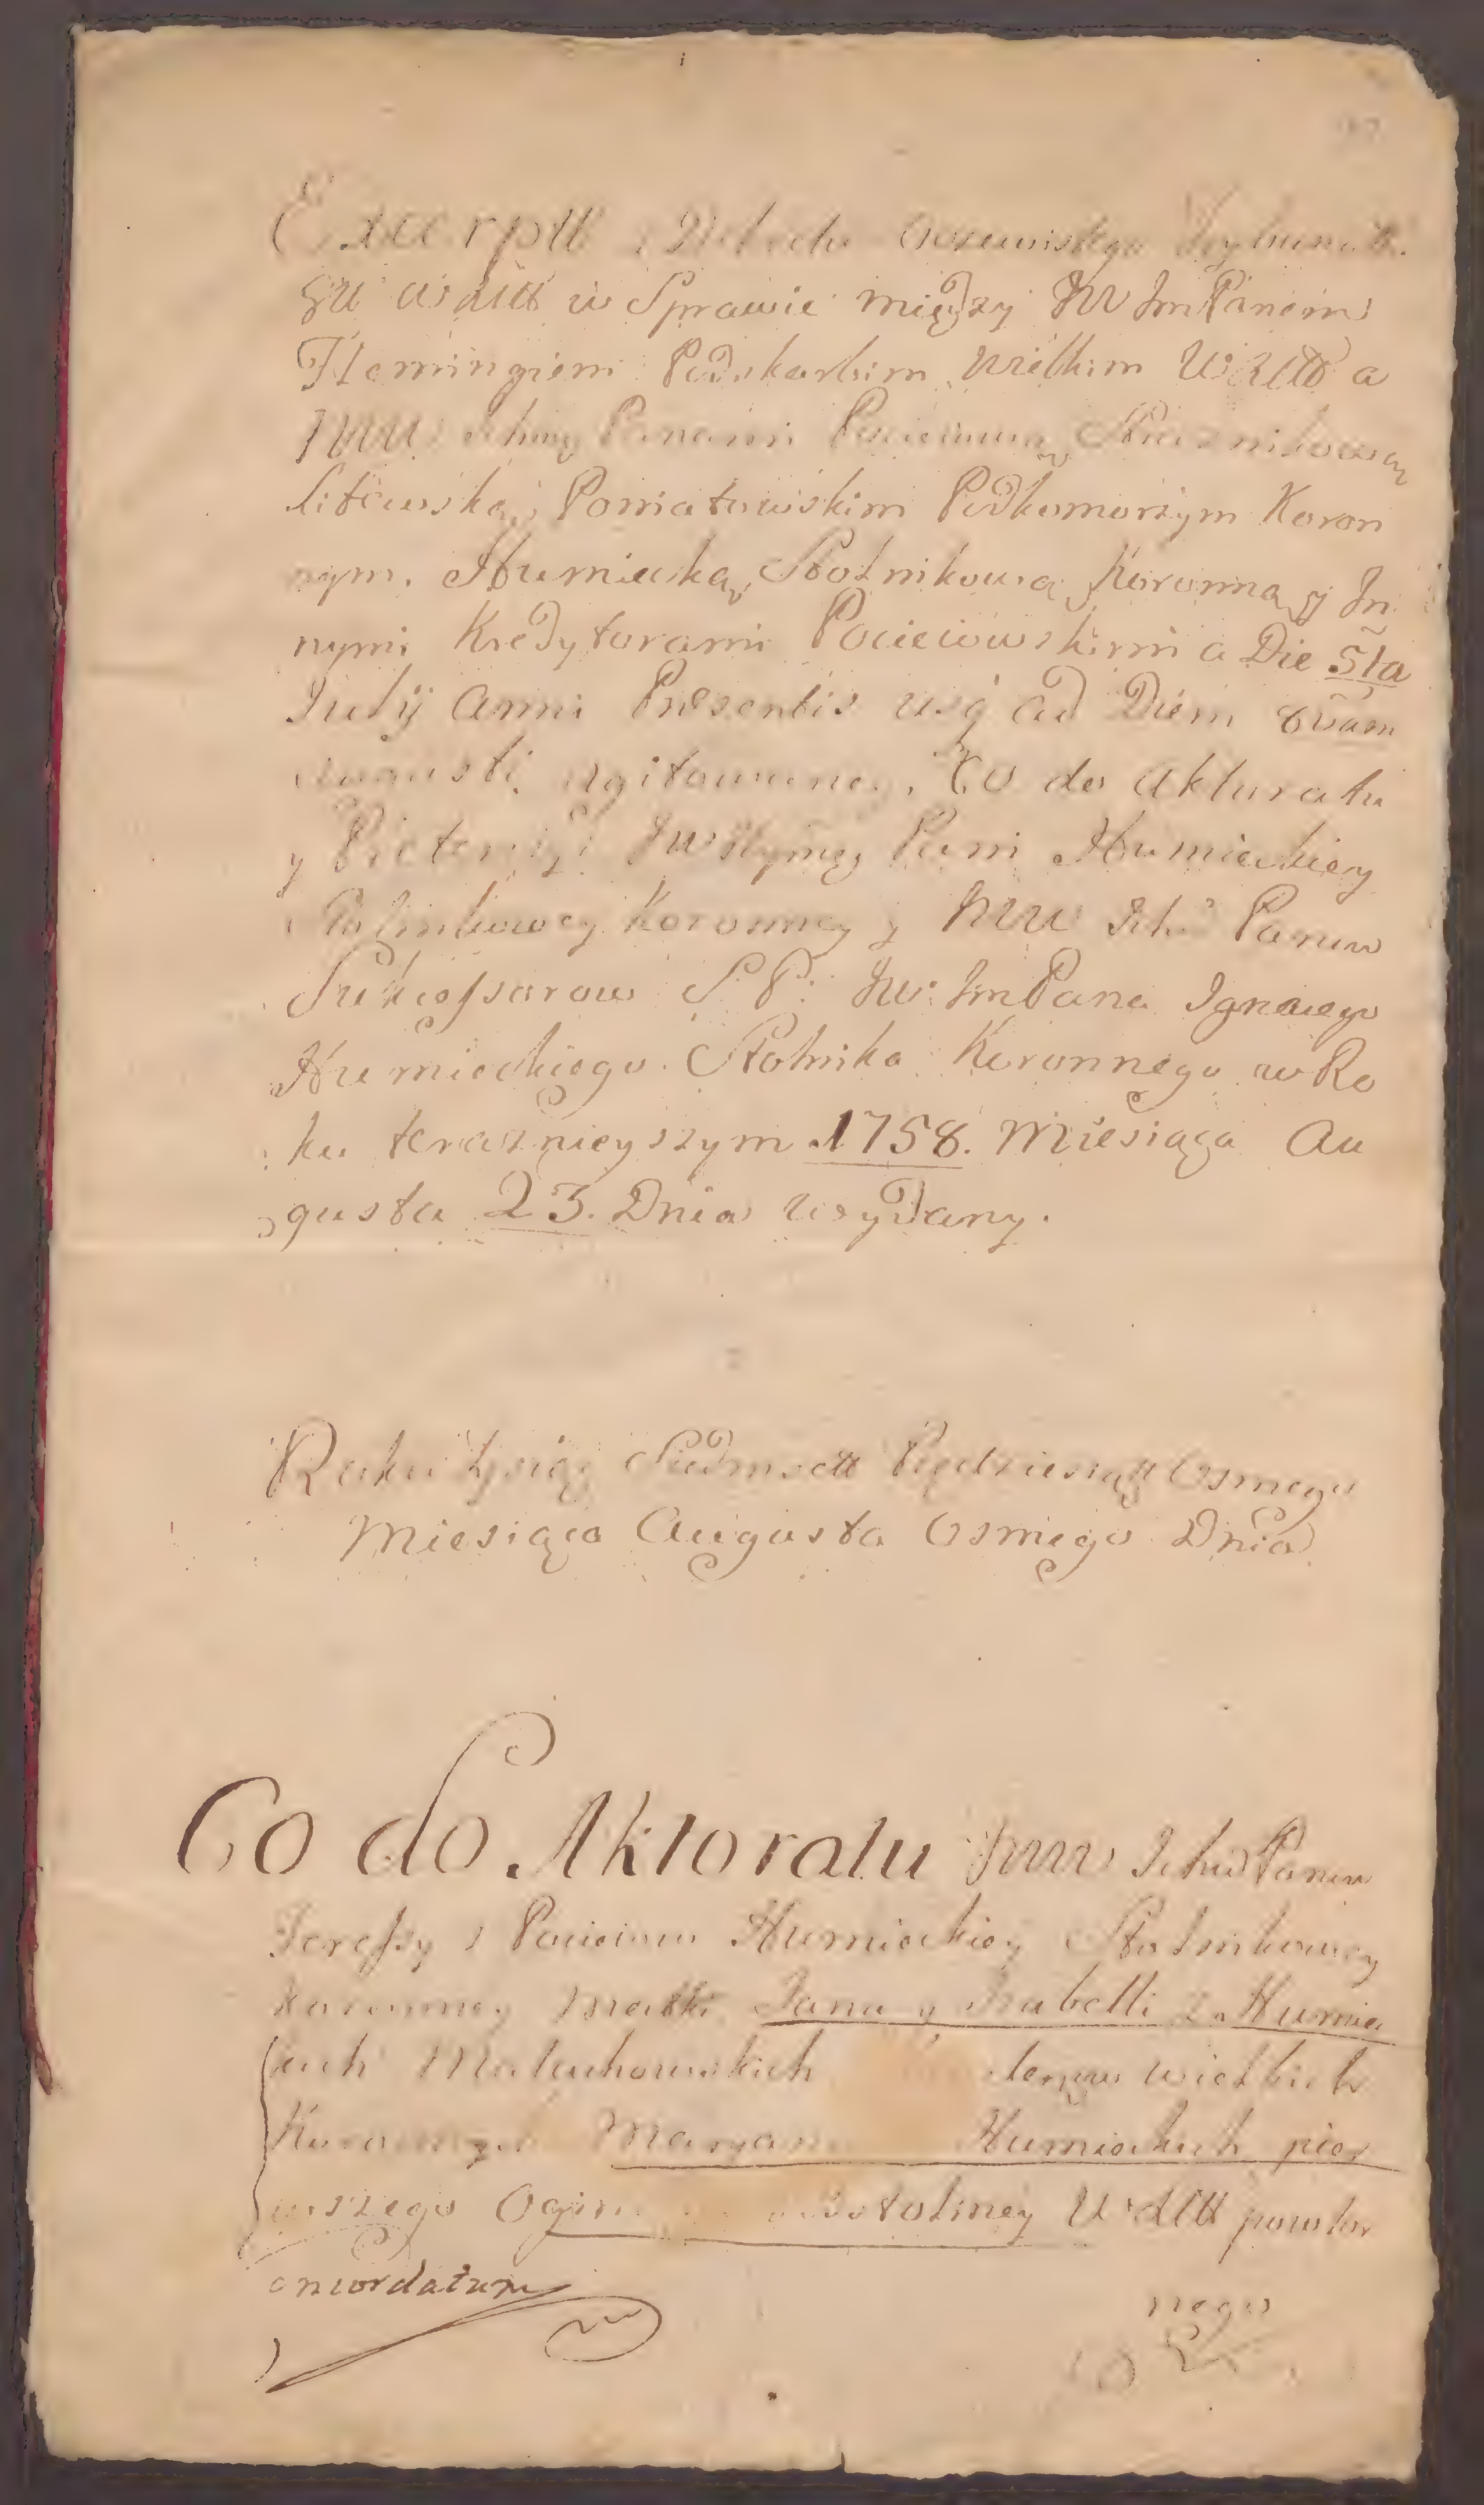 Excerptt z Dekretu Oczewistego Trybunału
Gł W XLitt w Sprawie między JW ImPanem
Flemingiem Podskarbim Wielkim WXLitt a
JWW Ichmę Panami Pocieiową Strażnikową
Litewską, Poniatowskim Podkomorzym Koron
nym, Humiecką, Stolnikową Koronną y In
nymi Kredytorami Pocieiowskimi a Die 5ta
Julÿ Anni Præsentis usq ad Diem 8vam
Augusti agitowaney, Co do Akturatu
y Pretensyi JW Jeymę Pani Humieckiey
Stolnikowey Koronney y JWW Ich Panow
Sukcessorow S. P. JW: ImPana Ignacego
Humieckiego Stolnika Koronnego w Ro
ku teraznieyszym 1758. Miesiąca Au
gusta 23. Dnia Wydany.
Roku Tysiąc Siedmsett Pięćdziesiątt Osmego
Miesiąca Augusta Osmego Dnia
Co do Aktoratu JWW Ich Panow
Teressy z Pocieiow Humieckiey Stolnikowey
Koronney Matki, Jana y Izabelli z Humie
ckich Małachowskich Wielkich
Koronnych Maryan Humieckich pier
wszego Ogin Stolney WXLitt powtor
oncordatum
nego